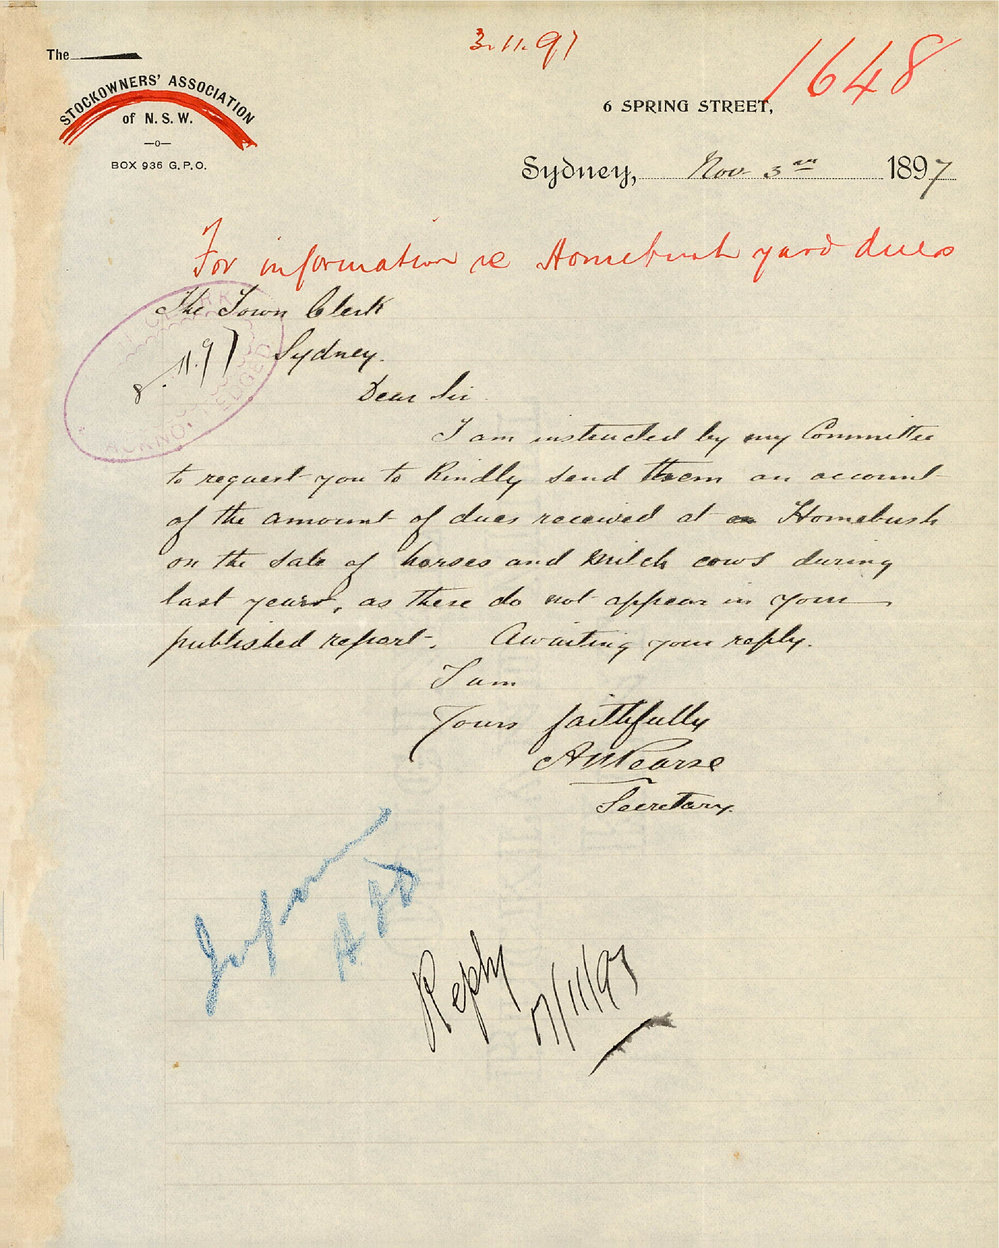 3.11.97
1648
The
STOCKOWNERS' ASSOCIATION
of N. S. W.
—o—
BOX 936 G. P. O.
6 SPRING STREET,
Sydney, Nov 3 1897
For information re Homebush yard dues
The Town Clerk
Sydney.
CLERK
8.11.97
ACKNOWLEDGED
Dear Sir
I am instructed by my Committee
to request you to kindly send them an account
of the amount of dues received at Homebush
on the sale of horses and milch cows during
last year, as these do not appear in your
published report. Awaiting your reply.
I am
Yours faithfully
A W Pearse
Secretary.
Inform
Reply
9/11/97